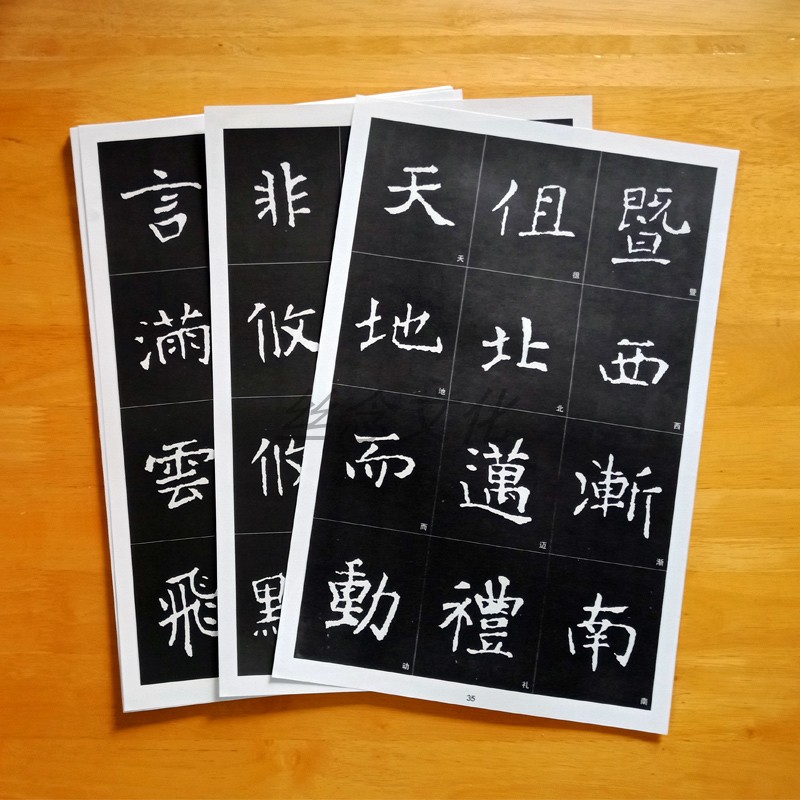 暨西漸南
暨 西 渐 南
徂北邁禮
徂 北 迈 礼
天地而動
天 地 西 动
35
非攸攸
言滿雲飛